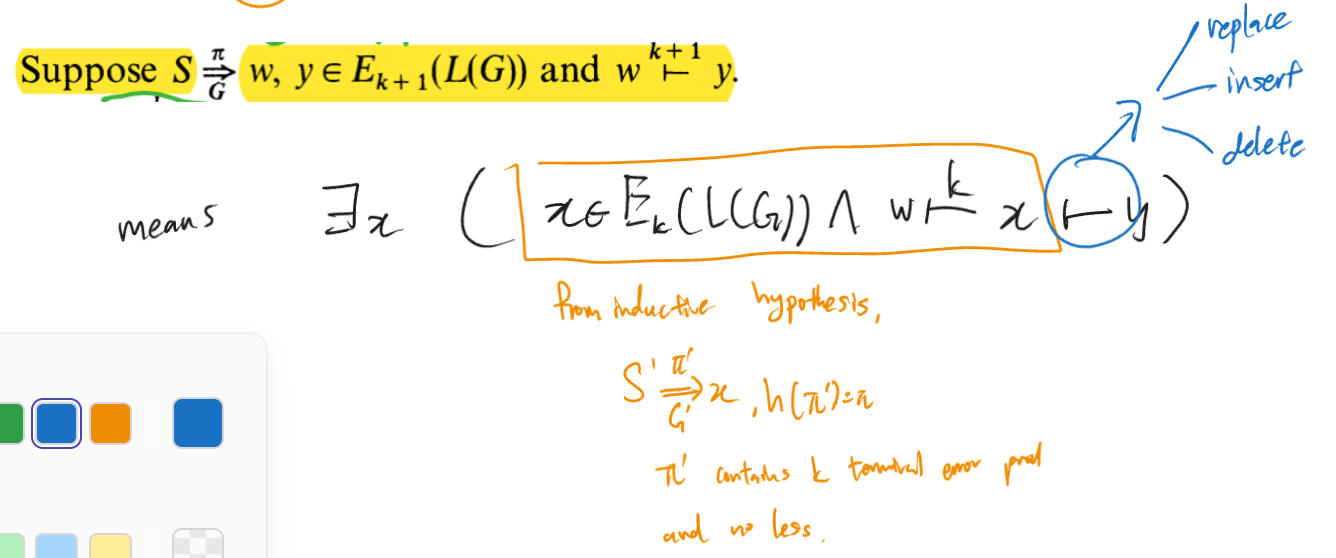 replace
Suppose S ⇒ w, y ∈ E_{k+1}(L(G)) and w ⊢^{k+1} y.
π
G
insert
delete
means ∃x ( x ∈ E_k(L(G)) ∧ w ⊢^k x ⊢ y )
from inductive hypothesis,
S' ⇒ x , h(π')=π
π'
G'
π' contains k terminal error prod
and no less.